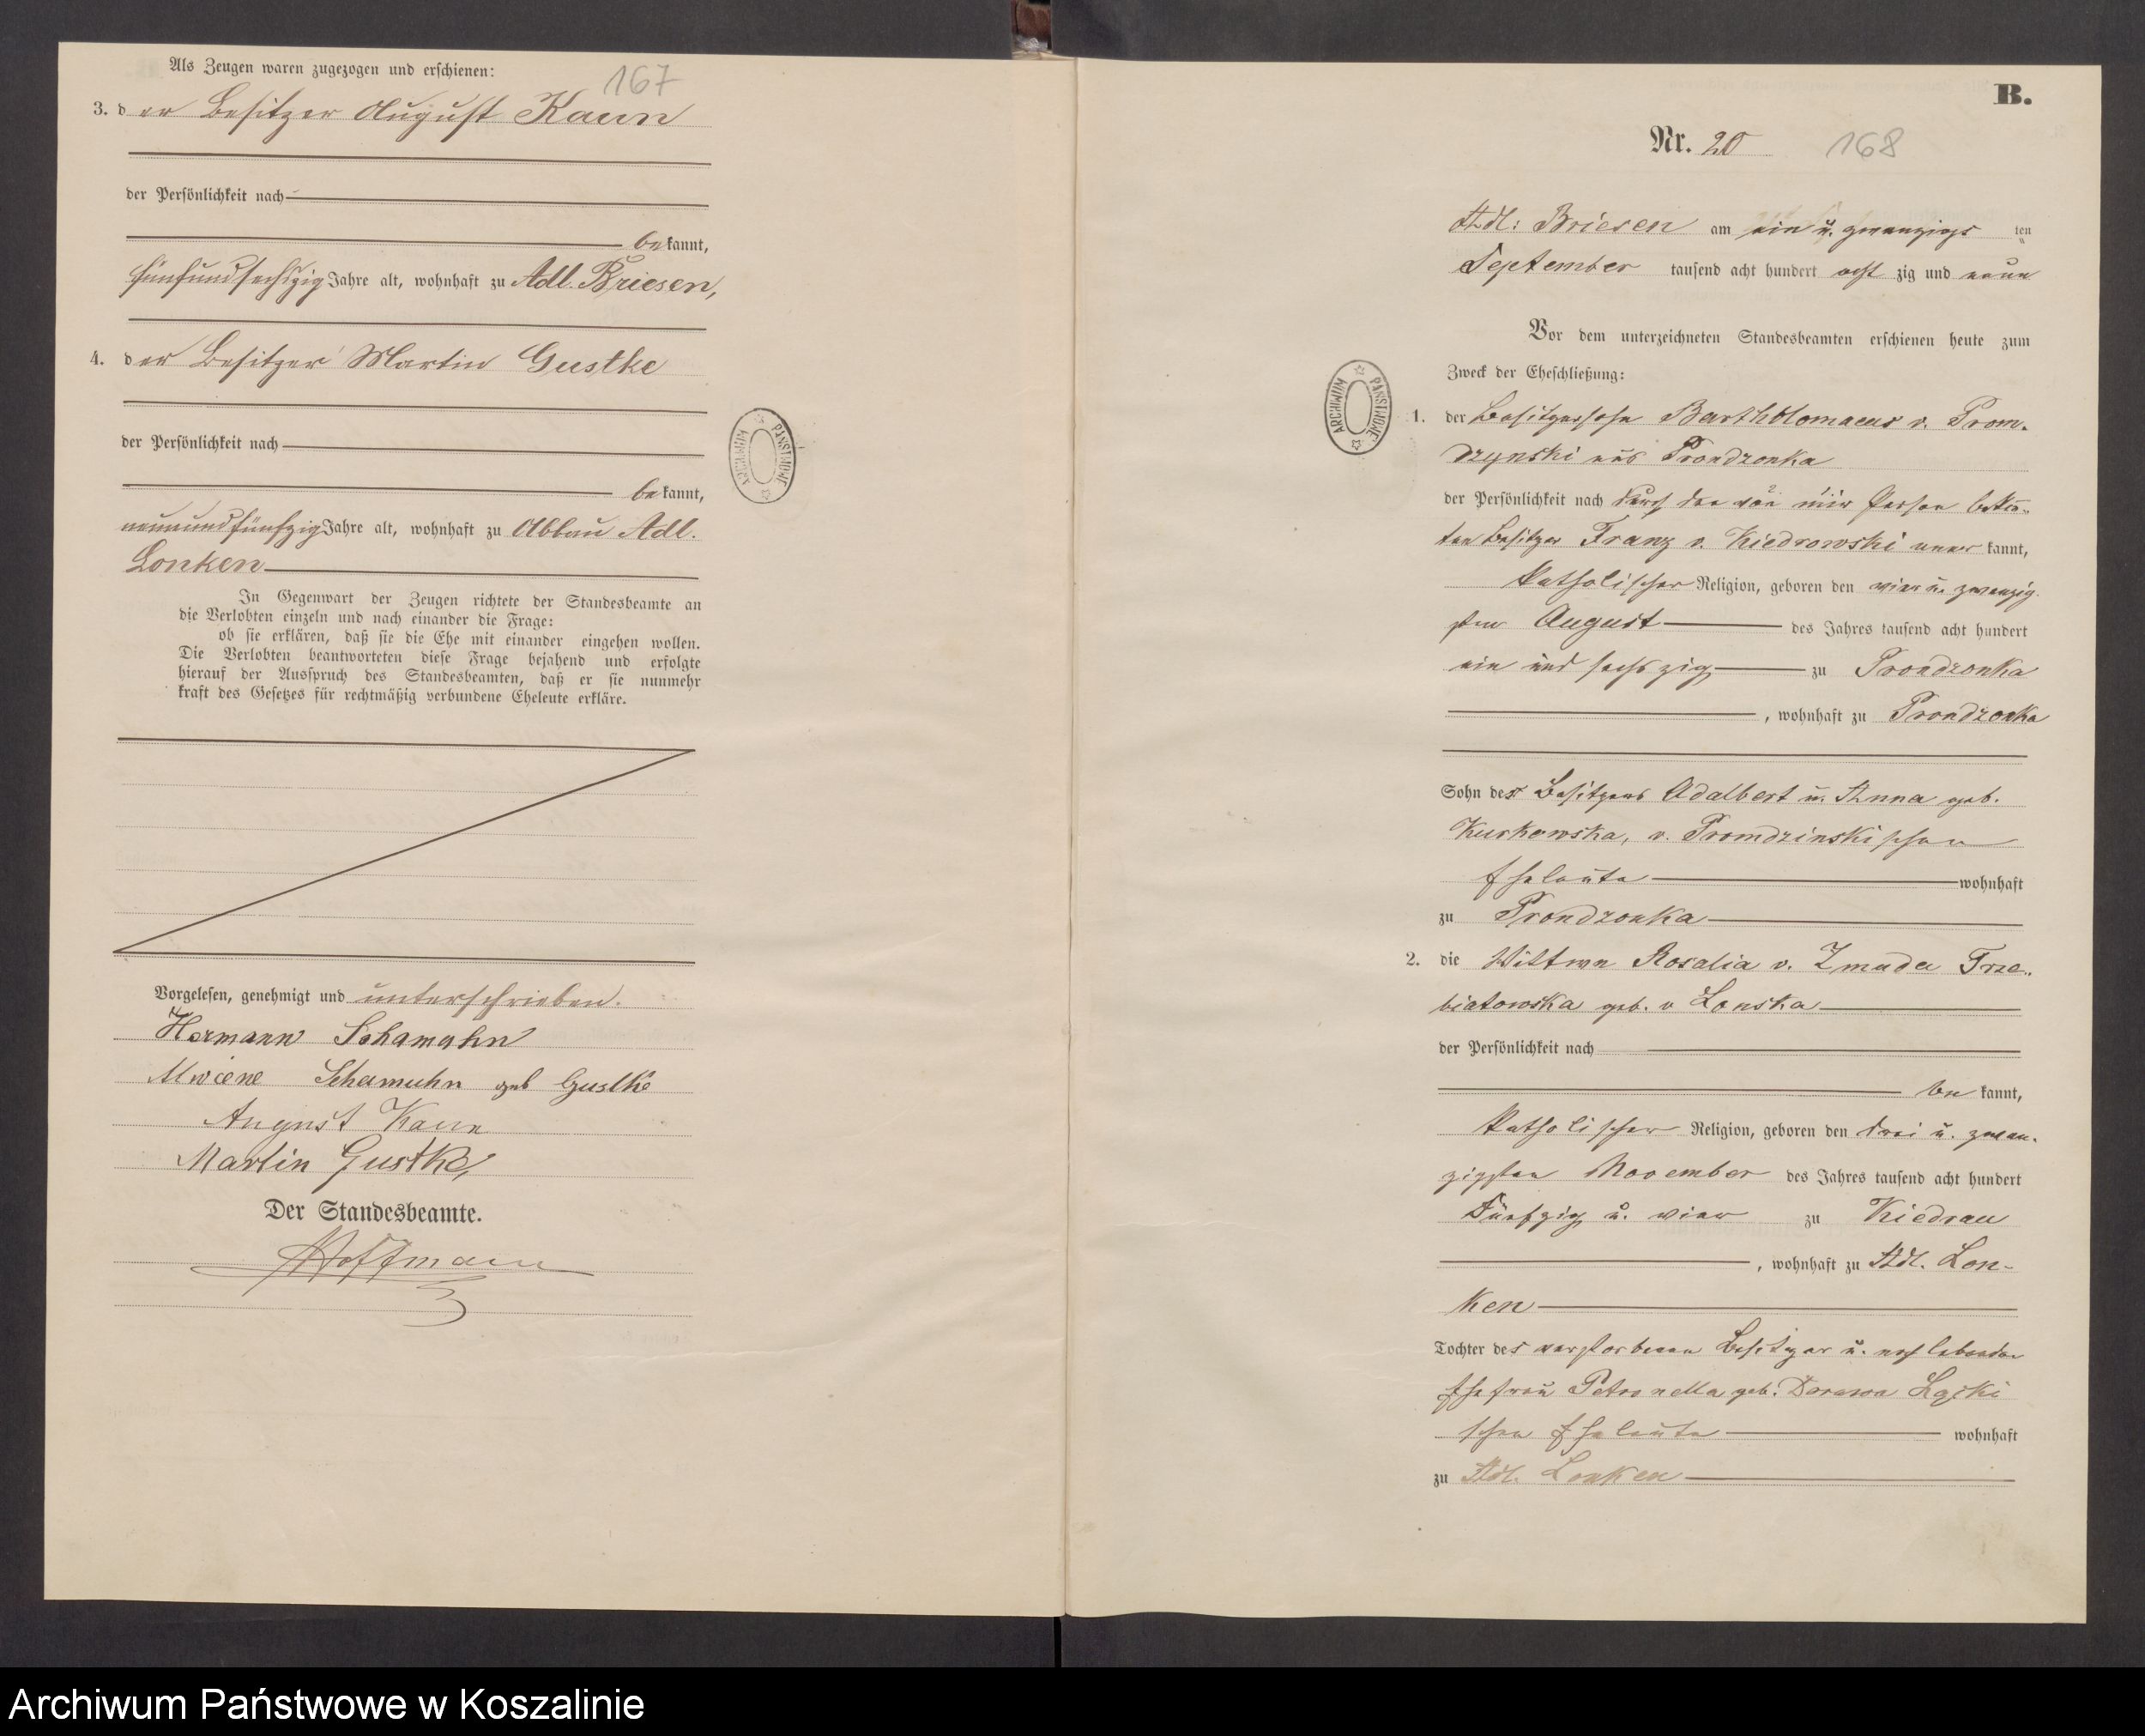 Als Zeugen waren zugezogen und erschienen:
167
3. der Besitzer August Kaun
der Persönlichkeit nach
bekannt,
fünfundsechszig Jahre alt, wohnhaft zu Adl. Briesen,
4. der Besitzer Martin Gustke
der Persönlichkeit nach
bekannt,
neunundfünfzig Jahre alt, wohnhaft zu Abbau Adl.
Lonken
In Gegenwart der Zeugen richtete der Standesbeamte an
die Verlobten einzeln und nach einander die Frage:
ob sie erklären, daß sie die Ehe mit einander eingehen wollen.
Die Verlobten beantworteten diese Frage bejahend und erfolgte
hierauf der Ausspruch des Standesbeamten, daß er sie nunmehr
kraft des Gesetzes für rechtmäßig verbundene Eheleute erkläre.
Vorgelesen, genehmigt und unterschrieben.
Hermann Schamuhn
Schamuhn geb Gustke
August Kaun
Martin Gustke
Der Standesbeamte.
Hoffmann
ARCHIWUM PAŃSTWOWE
B.
Nr. 20 168
Adl: Briesen am ein u. zwanzigs ten
September tausend acht hundert acht zig und neun
Vor dem unterzeichneten Standesbeamten erschienen heute zum
Zweck der Eheschließung:
ARCHIWUM PAŃSTWOWE
1. der Besitzersohn Bartholomaeus v. Prom-
dzynski aus Prondzonka
der Persönlichkeit nach durch den von mir Person bekan-
ten Besitzer Franz v. Kiedrowski aner kannt,
katholischer Religion, geboren den vier u. zwanzig
sten August des Jahres tausend acht hundert
ein und sechszig zu Prondzonka
, wohnhaft zu Prondzonka
Sohn der Besitzers Adalbert u. Anna geb.
Kurkowska, v. Promdzinskischen
Eheleute wohnhaft
zu Prondzonka
2. die Wittwe Rosalia v. Zmuda Trze-
biatowska geb. v Lonska
der Persönlichkeit nach
be kannt,
katholischer Religion, geboren den drei u. zwan-
zigsten November des Jahres tausend acht hundert
Fünfzig u. vier zu Kiedrau
, wohnhaft zu Adl. Lon-
ken
Tochter des verstorbenen Besitzer u. noch lebenden
Ehefrau Petronella geb.
schen Eheleute wohnhaft
zu Adl. Lonken
Archiwum Państwowe w Koszalinie